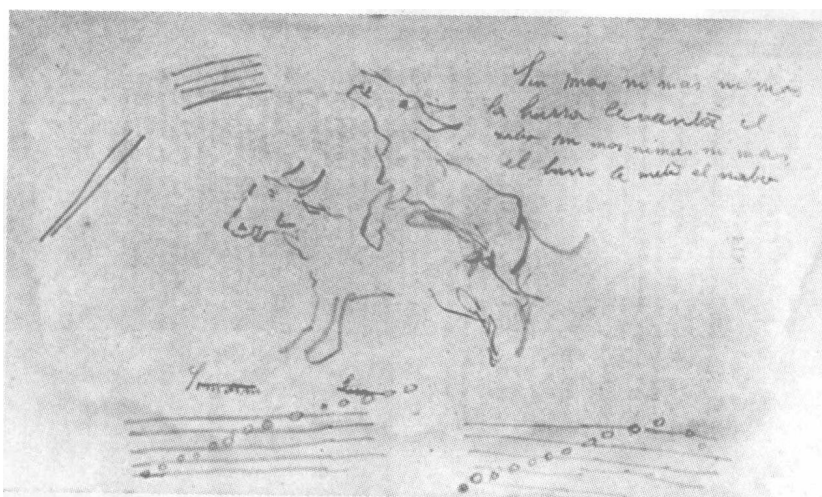 Sin mas ni mas ni mas
la burra levantó el
rabo sin mas ni mas ni mas
el burro le metió el nabo